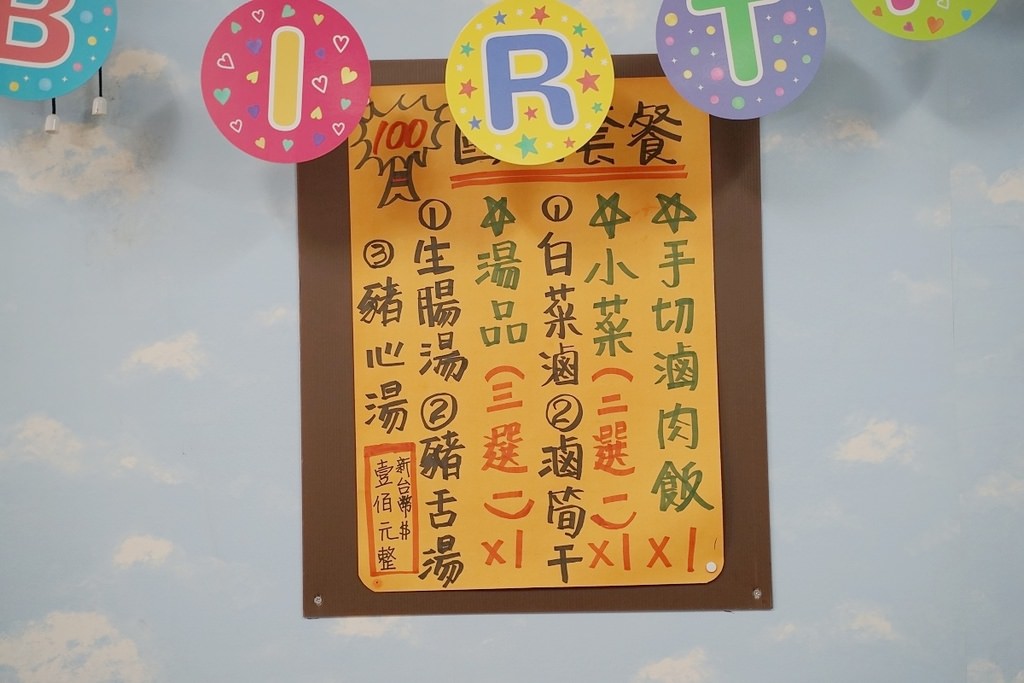 BIRT
套餐
100
☆手切滷肉飯 x1
☆小菜(二選一) x1
①白菜滷 ②滷筒干
☆湯品(三選一) x1
①生腸湯 ②豬舌湯
③豬心湯
新台幣$
壹佰元整